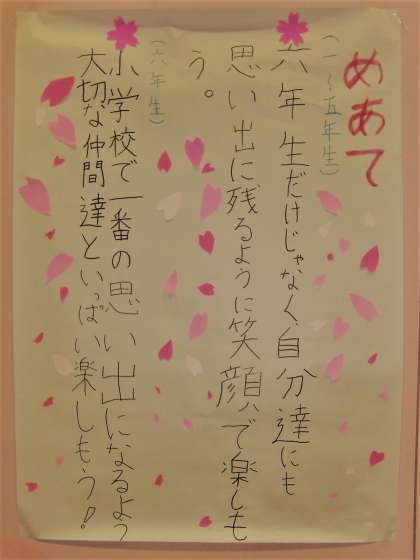 めあて
(一~五年生)
六年生だけじゃなく、自分達にも
思い出に残るように笑顔で楽しも
う。
(六年生)
小学校で一番の思い出になるよう
大切な仲間達といっぱい楽しもう!